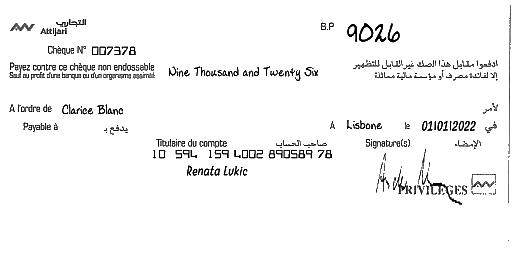 التجاري
Attijari
B.P 9026
Chèque N° 007378
Payez contre ce chèque non endossable
Sauf au profit d'une banque ou d'un organisme assimilé
Nine Thousand and Twenty Six
ادفعوا مقابل هذا الصك غير القابل للتظهير
إلا لفائدة مصرف أو مؤسسة مالية مماثلة
A l'ordre de Clarice Blanc لأمر
Payable à يدفع بـ
A Lisbone le 01/01/2022 في
Titulaire du compte صاحب الحساب Signature(s) الإمضاء
10 594 159 4002 890589 78
Renata Lukic
PRIVILEGES